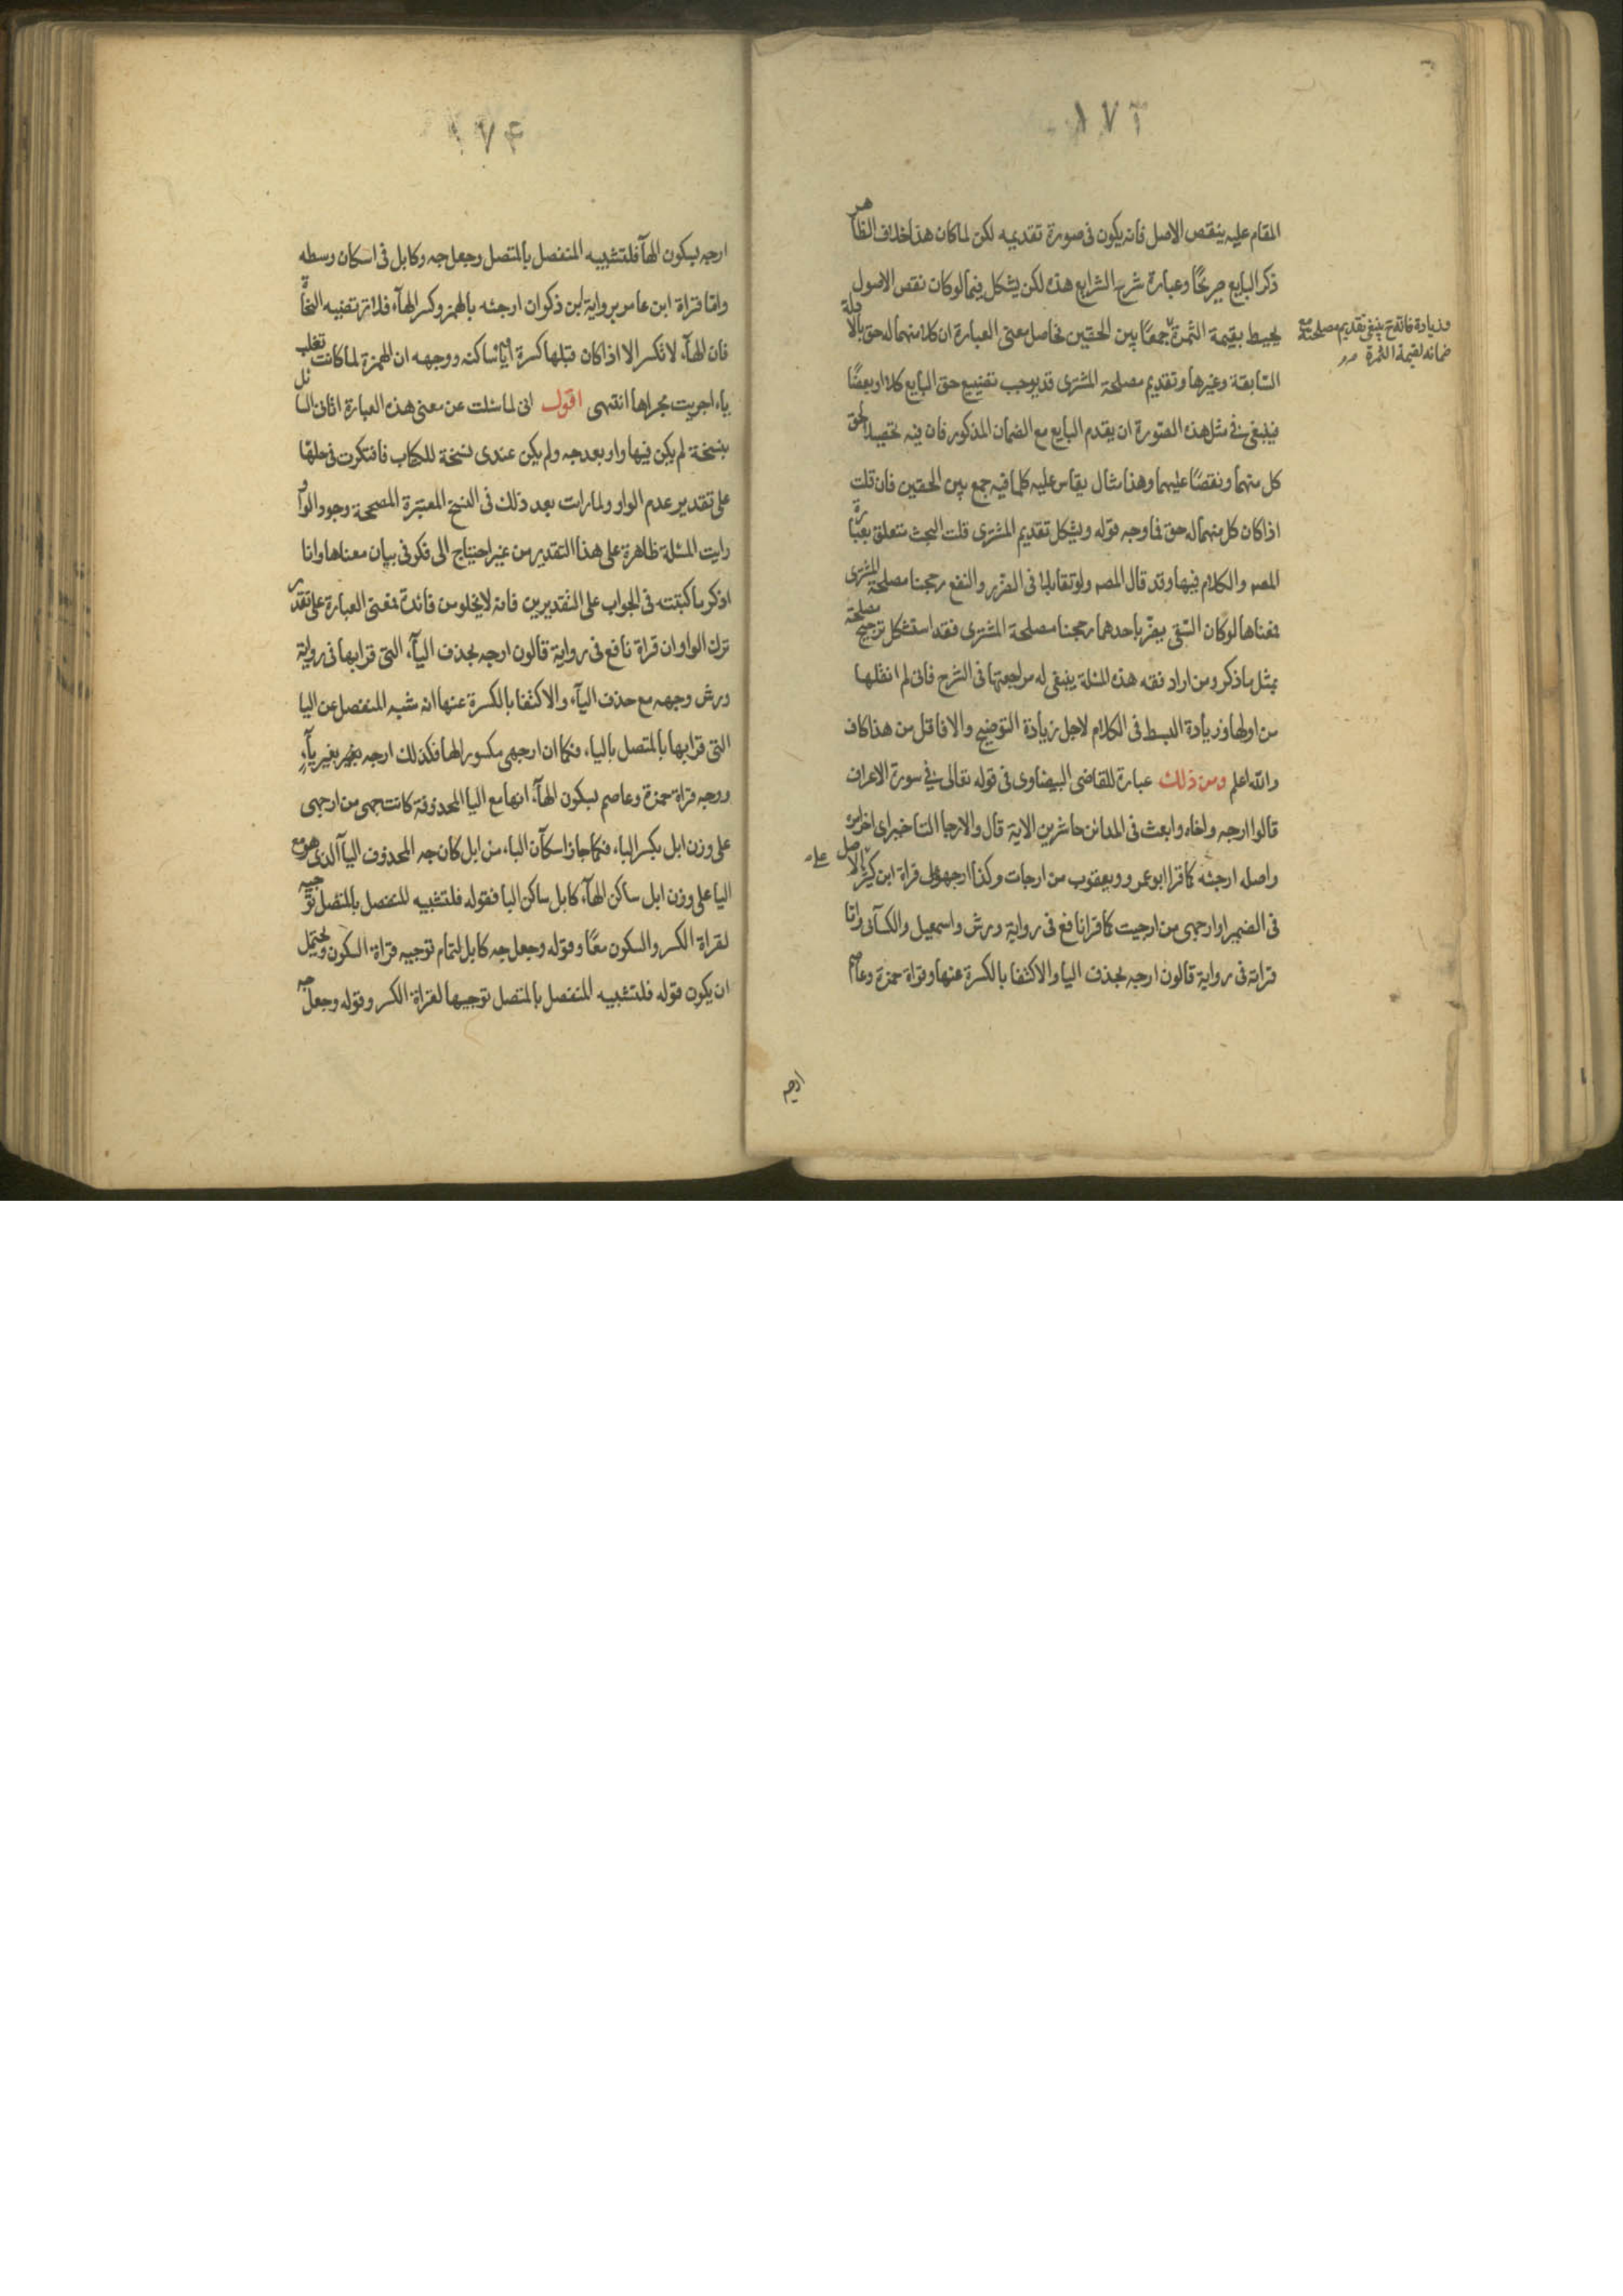 ١٧٣
المقام عليه ينقص الاصل فانه يكون فى صورة تقديمه لكن لما كان هذا خلاف الظاهر
ذكر البايع صريحًا وعبارة شرح الشرايع هذه لكن يشكل فيما لو كان نقص الاصول
يحيط بقيمة الثمرة جمعًا بين الحقين فحاصل معنى العبارة ان كلا منهما له حق بالادلة
وزيادة فانه ح ينبغى تقديم مصلحته مع
ضمانه لقيمة الثمرة صح
السابقة وغيرها وتقديم مصلحة المشترى قد يوجب تضييع حق البايع كلا او بعضًا
فينبغى فى مثل هذه الصورة ان يقدم البايع مع الضمان المذكور فان فيه تحصيلا لحق
كل منهما ونقصًا عليهما وهذا مثال يقاس عليه كلما فيه جمع بين الحقين فان قلت
اذا كان كل منهما له حق فما وجه قوله ويشكل تقديم المشترى قلت البحث متعلق بعبارة
المصه والكلام فيها وقد قال المصه ولو تقابلا فى الضرر والنفع رجحنا مصلحة المشترى
فمعناها لو كان السقى يضر باحدهما رجحنا مصلحة المشترى فقد استشكل ترجيح مصلحة
بمثل ما ذكر ومن اراد فقه هذه المسئلة ينبغى له مراجعتها فى الشرح فانى لم انقلها
من اولها وزيادة البسط فى الكلام لاجل زيادة التوضيح والا فاقل من هذا كاف
والله اعلم ومن ذلك عبارة للقاضى البيضاوى فى قوله تعالى فى سورة الاعراف
قالوا ارجه واخاه وابعث فى المدائن حاشرين الاية قال والارجا التاخير اى اخر امره
واصله ارجئه كما قرا ابو عمرو ويعقوب من ارجات وكذا ارجهو على قراة ابن كثير على الاصل
فى الضمير او ارجهى من ارجيت كما قرا نافع فى رواية ورش واسمعيل والكسآئى واما
قراته فى رواية قالون ارجه بحذف اليا والاكتفا بالكسرة عنها وقراة حمزة وعاصم
ارجه
١٧٤
ارجه بسكون الهآ فلتشبيه المنفصل بالمتصل وجعل جه وكابل فى اسكان وسطه
واما قراة ابن عامر برواية ابن ذكوان ارجئه بالهمز وكسر الهآء فلا ترتضيه النحاة
فان الهآء لا تكسر الا اذا كان قبلها كسرة او يا ساكنه ووجهه ان الهمزة لما كانت تقلب
ياء اجريت مجراها انتهى اقول انى لما سئلت عن معنى هذه العبارة اتانى السائل
بنسخة لم يكن فيها واو بعد جه ولم يكن عندى نسخة للكتاب فافتكرت فى حلها
على تقدير عدم الواو ولما رات بعد ذلك فى النسخ المعتبرة المصححة وجود الواو
رايت المسئلة ظاهرة على هذا التقدير من غير احتياج الى فكر فى بيان معناها وانا
اذكر ما كتبته فى الجواب على التقديرين فانه لا يخلو من فائدة فمعنى العبارة على تقدير
ترك الواو ان قراة نافع فى رواية قالون ارجه بحذف اليآء التى قرا بها فى رواية
ورش وجهه مع حذف اليآء والاكتفا بالكسرة عنها انه شبه المنفصل عن اليا
التى قرا بها بالمتصل بالياء فكما ان ارجهى مكسور الها فكذلك ارجه بغير يآء
ووجه قراة حمزة وعاصم بسكون الهآء انها مع اليا المحذوفة كانت جهى من ارجهى
على وزن ابل بكسر الباء فكما جاز اسكآن الباء من ابل كان جه المحذوف اليآ الذى هو مع
اليا على وزن ابل ساكن الهآء كابل ساكن البا فقوله فلتشبيه المنفصل بالمتصل توجيه
لقراة الكسر والسكون معًا وقوله وجعل جه كابل لتمام توجيه قراة السكون ويحتمل
ان يكون قوله فلتشبيه المنفصل بالمتصل توجيها لقراة الكسر وقوله وجعل جه